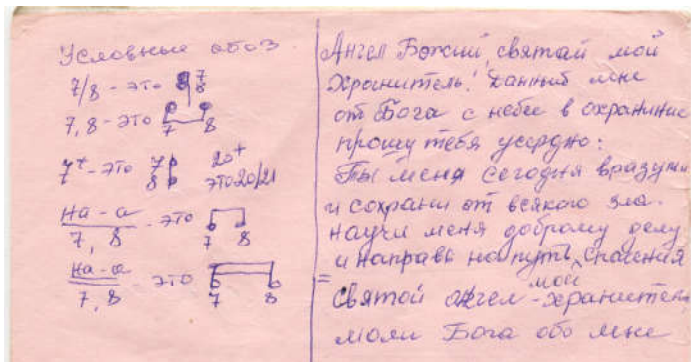 Условные обоз.
7/8 - это 7 8
7,8 - это 7 8
7+ - это 7 8 20+ это 20/21
на-а - это
7, 8 7 8
на-а - это
7, 8 7 8
Ангел Божий, святай мой
Хранитель! данный мне
от Бога с небес в охранние
прошу тебя усердно:
Ты меня сегодня вразуми
и сохрани от всякого зла.
научи меня доброму делу
и направь на путь спасения
мой
святой ангел - хранитель
моли Бога обо мне